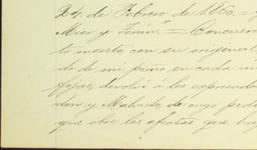 24. de Febrero de 1860. =
Mier y Terán = Concuer
lo inserto con su original
do de mi puño en cada un
fojas, devolví á los expresados
don y Machado, de cuyo pedi
que obre los efectos que hay